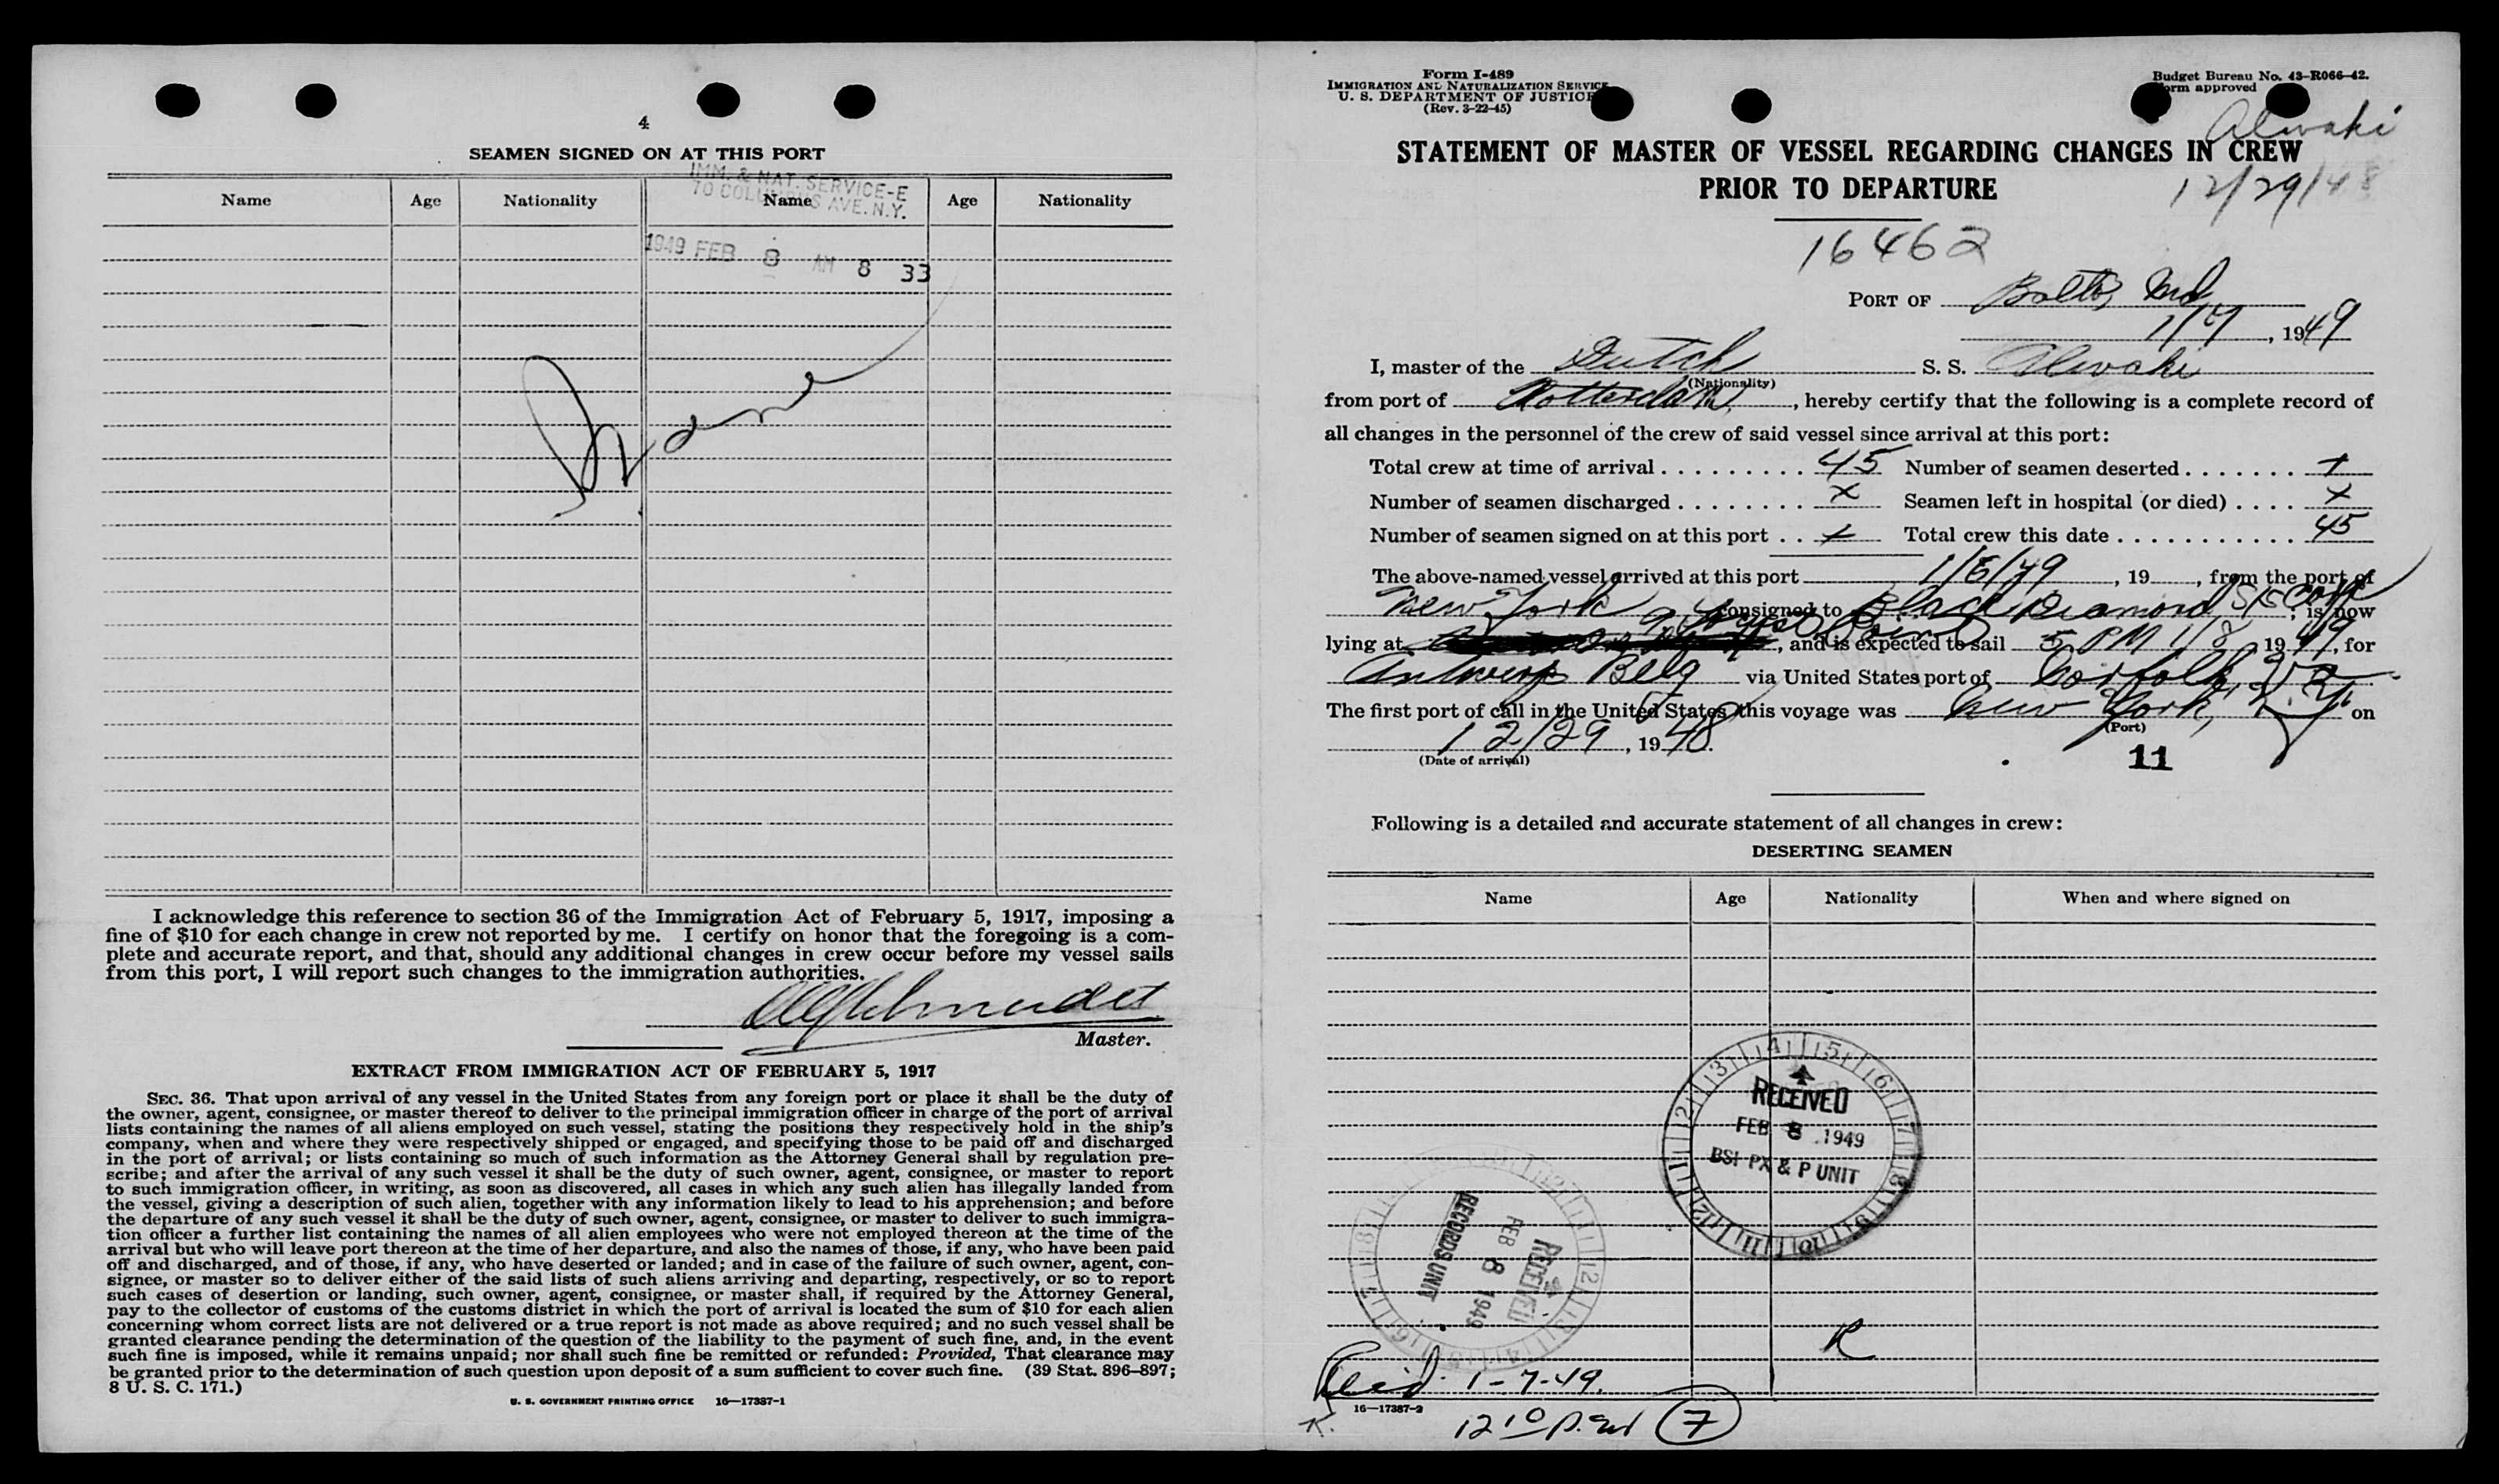 4
SEAMEN SIGNED ON AT THIS PORT
IMM. & NAT. SERVICE-E
70 COLUMBUS AVE. N.Y.
Name Age Nationality Name Age Nationality
1949 FEB 8 AM 8 33
None
I acknowledge this reference to section 36 of the Immigration Act of February 5, 1917, imposing a
fine of $10 for each change in crew not reported by me. I certify on honor that the foregoing is a com-
plete and accurate report, and that, should any additional changes in crew occur before my vessel sails
from this port, I will report such changes to the immigration authorities.
Master.
EXTRACT FROM IMMIGRATION ACT OF FEBRUARY 5, 1917
SEC. 36. That upon arrival of any vessel in the United States from any foreign port or place it shall be the duty of
the owner, agent, consignee, or master thereof to deliver to the principal immigration officer in charge of the port of arrival
lists containing the names of all aliens employed on such vessel, stating the positions they respectively hold in the ship's
company, when and where they were respectively shipped or engaged, and specifying those to be paid off and discharged
in the port of arrival; or lists containing so much of such information as the Attorney General shall by regulation pre-
scribe; and after the arrival of any such vessel it shall be the duty of such owner, agent, consignee, or master to report
to such immigration officer, in writing, as soon as discovered, all cases in which any such alien has illegally landed from
the vessel, giving a description of such alien, together with any information likely to lead to his apprehension; and before
the departure of any such vessel it shall be the duty of such owner, agent, consignee, or master to deliver to such immigra-
tion officer a further list containing the names of all alien employees who were not employed thereon at the time of the
arrival but who will leave port thereon at the time of her departure, and also the names of those, if any, who have been paid
off and discharged, and of those, if any, who have deserted or landed; and in case of the failure of such owner, agent, con-
signee, or master so to deliver either of the said lists of such aliens arriving and departing, respectively, or so to report
such cases of desertion or landing, such owner, agent, consignee, or master shall, if required by the Attorney General,
pay to the collector of customs of the customs district in which the port of arrival is located the sum of $10 for each alien
concerning whom correct lists are not delivered or a true report is not made as above required; and no such vessel shall be
granted clearance pending the determination of the question of the liability to the payment of such fine, and, in the event
such fine is imposed, while it remains unpaid; nor shall such fine be remitted or refunded: Provided, That clearance may
be granted prior to the determination of such question upon deposit of a sum sufficient to cover such fine. (39 Stat. 896–897;
8 U. S. C. 171.)
U. S. GOVERNMENT PRINTING OFFICE 16—17387-1
Form I-489
IMMIGRATION AND NATURALIZATION SERVICE
U. S. DEPARTMENT OF JUSTICE
(Rev. 3-22-45)
Budget Bureau No. 43-R066-42.
Form approved
Alwaki
12/29/48
STATEMENT OF MASTER OF VESSEL REGARDING CHANGES IN CREW
PRIOR TO DEPARTURE
16462
PORT OF Balto, Md
1/7, 1949
I, master of the Dutch S. S. Alwaki
(Nationality)
from port of Rotterdam, hereby certify that the following is a complete record of
all changes in the personnel of the crew of said vessel since arrival at this port:
Total crew at time of arrival 45 Number of seamen deserted x
Number of seamen discharged x Seamen left in hospital (or died) x
Number of seamen signed on at this port x Total crew this date 45
The above-named vessel arrived at this port 1/6/49, 19, from the port of
New York consigned to Black Diamond S/S Corp, is now
lying at 9 Locust Point, and is expected to sail 5 PM 1/8, 1949, for
Antwerp Belg via United States port of Norfolk, Va.
The first port of call in the United States this voyage was New York, N.Y. on
(Port)
12/29, 1948.
(Date of arrival)
11
Following is a detailed and accurate statement of all changes in crew:
DESERTING SEAMEN
Name Age Nationality When and where signed on
RECEIVED
FEB 8 1949
BSI PX & P UNIT
RECEIVED
FEB 8 1949
RECORDS UNIT
R
Rec'd. 1-7-49.
16—17387-2
K.
12 10 p.m. 7